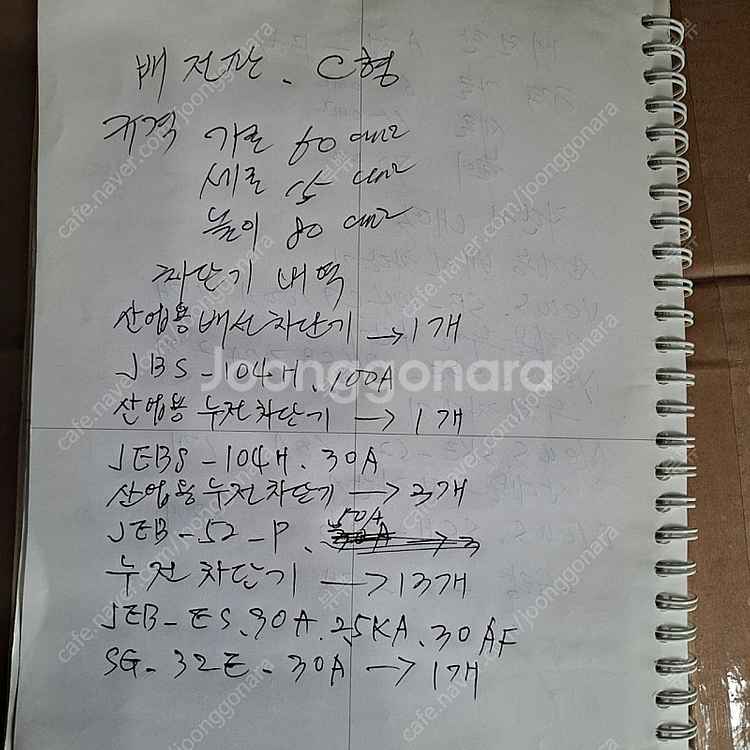 배전판. C형
규격 가로 60 cm
세로 25 cm
높이 80 cm
차단기 내역
산업용배선차단기 → 1개
JBS - 104H. 100A
산업용 누전차단기 → 1개
JEBS - 104H. 30A
산업용누전차단기 → 3개
JEB - 52 - P. 50A
누전차단기 → 13개
JEB - ES. 30A. 2.5KA. 30AF
SG - 32E - 30A → 1개
Joonggonara
cafe.naver.com/joonggonara